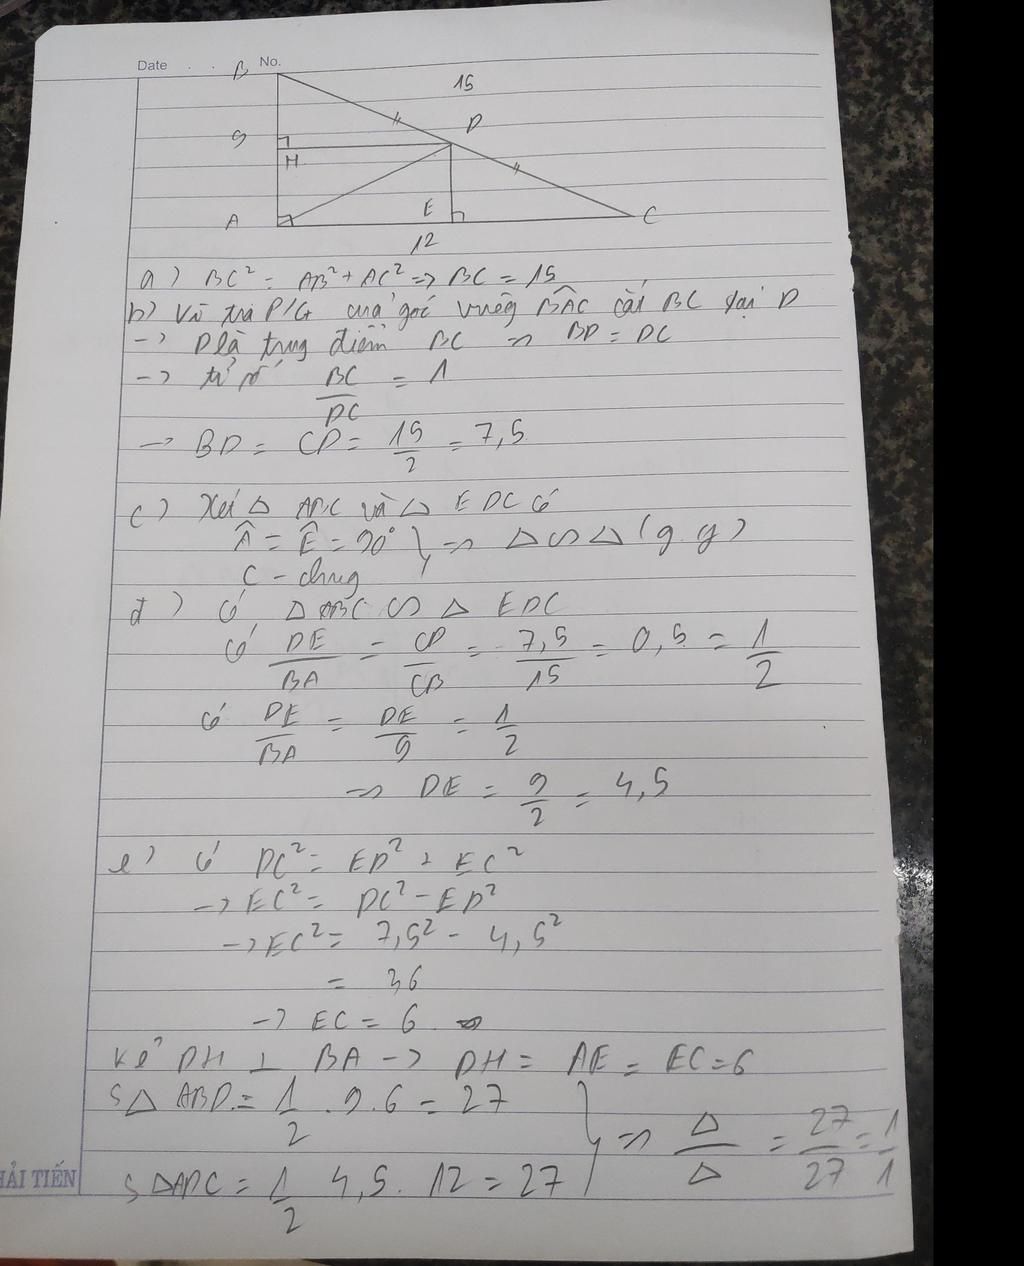 Date . . No.
B
15
9
D
H
A
E
C
12
a) BC² = AB² + AC² => BC = 15
b) Vì tia P/G của góc vuông BAC cắt BC tại D
-> D là trung điểm BC => BD = DC
-> tỉ số BC/DC = 1
-> BD = CD = 15/2 = 7,5
c) Xét △ ABC và △ EDC có
Â = Ê = 90° } => △ ∽ △ (g.g)
C - chung
d) Có △ ABC ∽ △ EDC
Có DE/BA = CD/CB = 7,5/15 = 0,5 = 1/2
Có DE/BA = DE/9 = 1/2
=> DE = 9/2 = 4,5
e) Có DC² = ED² + EC²
-> EC² = DC² - ED²
-> EC² = 7,5² - 4,5²
= 36
-> EC = 6
Kẻ DH ⊥ BA -> DH = AE = EC = 6
S△ ABD = 1/2 . 9 . 6 = 27
} => △/△ = 27/27 = 1/1
S△ADC = 1/2 4,5 . 12 = 27
HẢI TIẾN